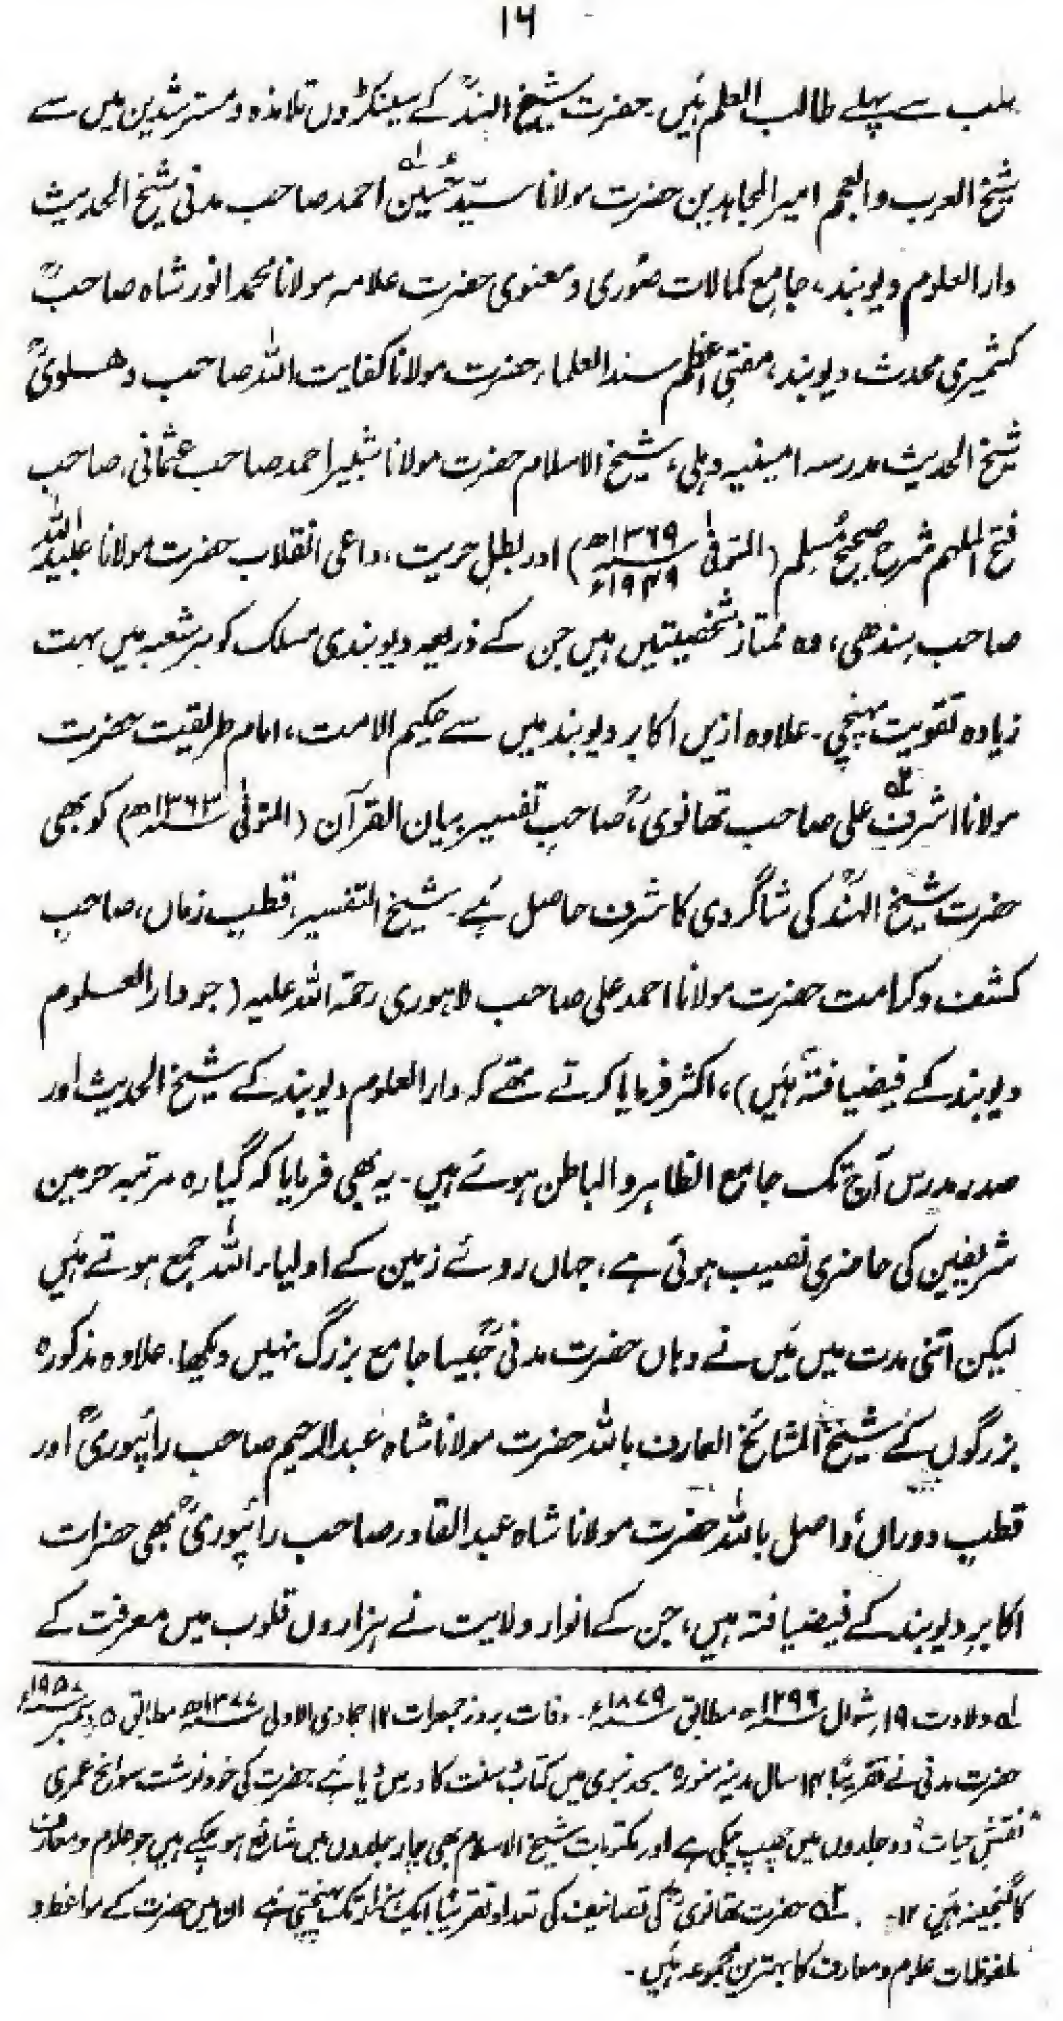 ۱۶
سب سے پہلے طالب العلم ہیں۔ حضرت شیخ الہندؒ کے سینکڑوں تلامذہ و مسترشدین میں سے
شیخ العرب والعجم امیر المجاہدین حضرت مولانا سیّد حُسین۱ احمد صاحب مدنی شیخ الحدیث
دارالعلوم دیوبند، جامع کمالات صُوری و معنوی حضرت علامہ مولانا محمد انور شاہ صاحبؒ
کشمیری محدث دیوبند، مفتیِ اعظم سند العلماء حضرت مولانا کفایت اللہ صاحب دہلویؒ
شیخ الحدیث مدرسہ امینیہ دہلی، شیخ الاسلام حضرت مولانا شبیر احمد صاحب عثمانی، صاحب
فتح الملہم شرح صحیح مُسلم (المتوفٰی ۱۳۶۹ھ ۱۹۴۹ء) اور بطلِ حریت، داعی انقلاب حضرت مولانا عبید اللہ
صاحب سندھی، وہ ممتاز شخصیتیں ہیں جن کے ذریعہ دیوبندی مسلک کو ہر شعبہ میں بہت
زیادہ تقویت پہنچی۔ علاوہ ازیں اکابر دیوبند میں سے حکیم الامت، امام طریقیت حضرت
مولانا اشرف۲ علی صاحب تھانویؒ، صاحبِ تفسیر بیان القرآن (المتوفٰی ۱۳۶۳ھ) کو بھی
حضرت شیخ الہندؒ کی شاگردی کا شرف حاصل ہے۔ شیخ التفسیر، قطب زماں، صاحبِ
کشف و کرامت حضرت مولانا احمد علی صاحب لاہوری رحمۃ اللہ علیہ (جو دارالعلوم
دیوبند کے فیضیافتہ ہیں)، اکثر فرمایا کرتے تھے کہ دارالعلوم دیوبند کے شیخ الحدیث اور
صدر مدرس آج تک جامع الظاہر والباطن ہوئے ہیں۔ یہ بھی فرمایا کہ گیارہ مرتبہ حرمین
شریفین کی حاضری نصیب ہوئی ہے، جہاں روئے زمین کے اولیاء اللہ جمع ہوتے ہیں
لیکن اتنی مدت میں مَیں نے وہاں حضرت مدنیؒ جیسا جامع بزرگ نہیں دیکھا۔ علاوہ مذکورہ
بزرگوں کے شیخ المشائخ العارف باللہ حضرت مولانا شاہ عبدالرحیم صاحب رائپوریؒ اور
قطب دوراں، واصل باللہ حضرت مولانا شاہ عبدالقادر صاحب رائپوریؒ بھی حضرات
اکابرِ دیوبند کے فیضیافتہ ہیں، جن کے انوارِ ولایت نے ہزاروں قلوب میں معرفت کے
۱ ولادت ۱۹ شوال ۱۲۹۶ھ مطابق ۱۸۷۹ء۔ وفات بروز جمعرات ۱۲ جمادی الاولیٰ ۱۳۷۷ھ مطابق ۵ دسمبر ۱۹۵۷ء
حضرت مدنی نے تقریباً ۱۴ سال مدینہ منورہ مسجد نبوی میں کتاب و سنت کا درس دیا ہے، حضرت کی خود نوشت سوانح عمری
”نقش حیات“ دو جلدوں میں چھپ چکی ہے اور مکتوبات شیخ الاسلام بھی چار جلدوں میں شائع ہو چکے ہیں جو علوم و معارف
کا گنجینہ ہیں ۱۲۔ ۲ حضرت تھانویؒ کی تصانیف کی تعداد تقریباً ایک ہزار تک پہنچتی ہے ان میں حضرت کے مواعظ و
ملفوظات علوم و معارف کا بہترین مجموعہ ہیں۔